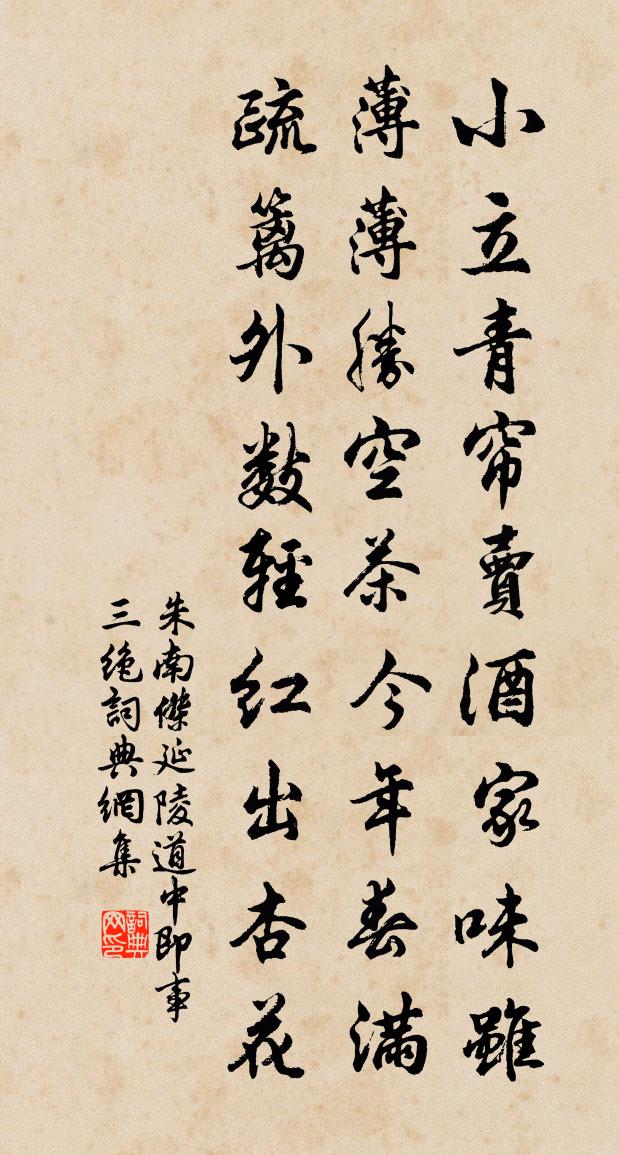 小立青帘賣酒家味雖
薄薄勝空茶今年春滿
疏籬外數輕紅出杏花
朱南傑延陵道中即事
三絶詞典網集
詞典網印